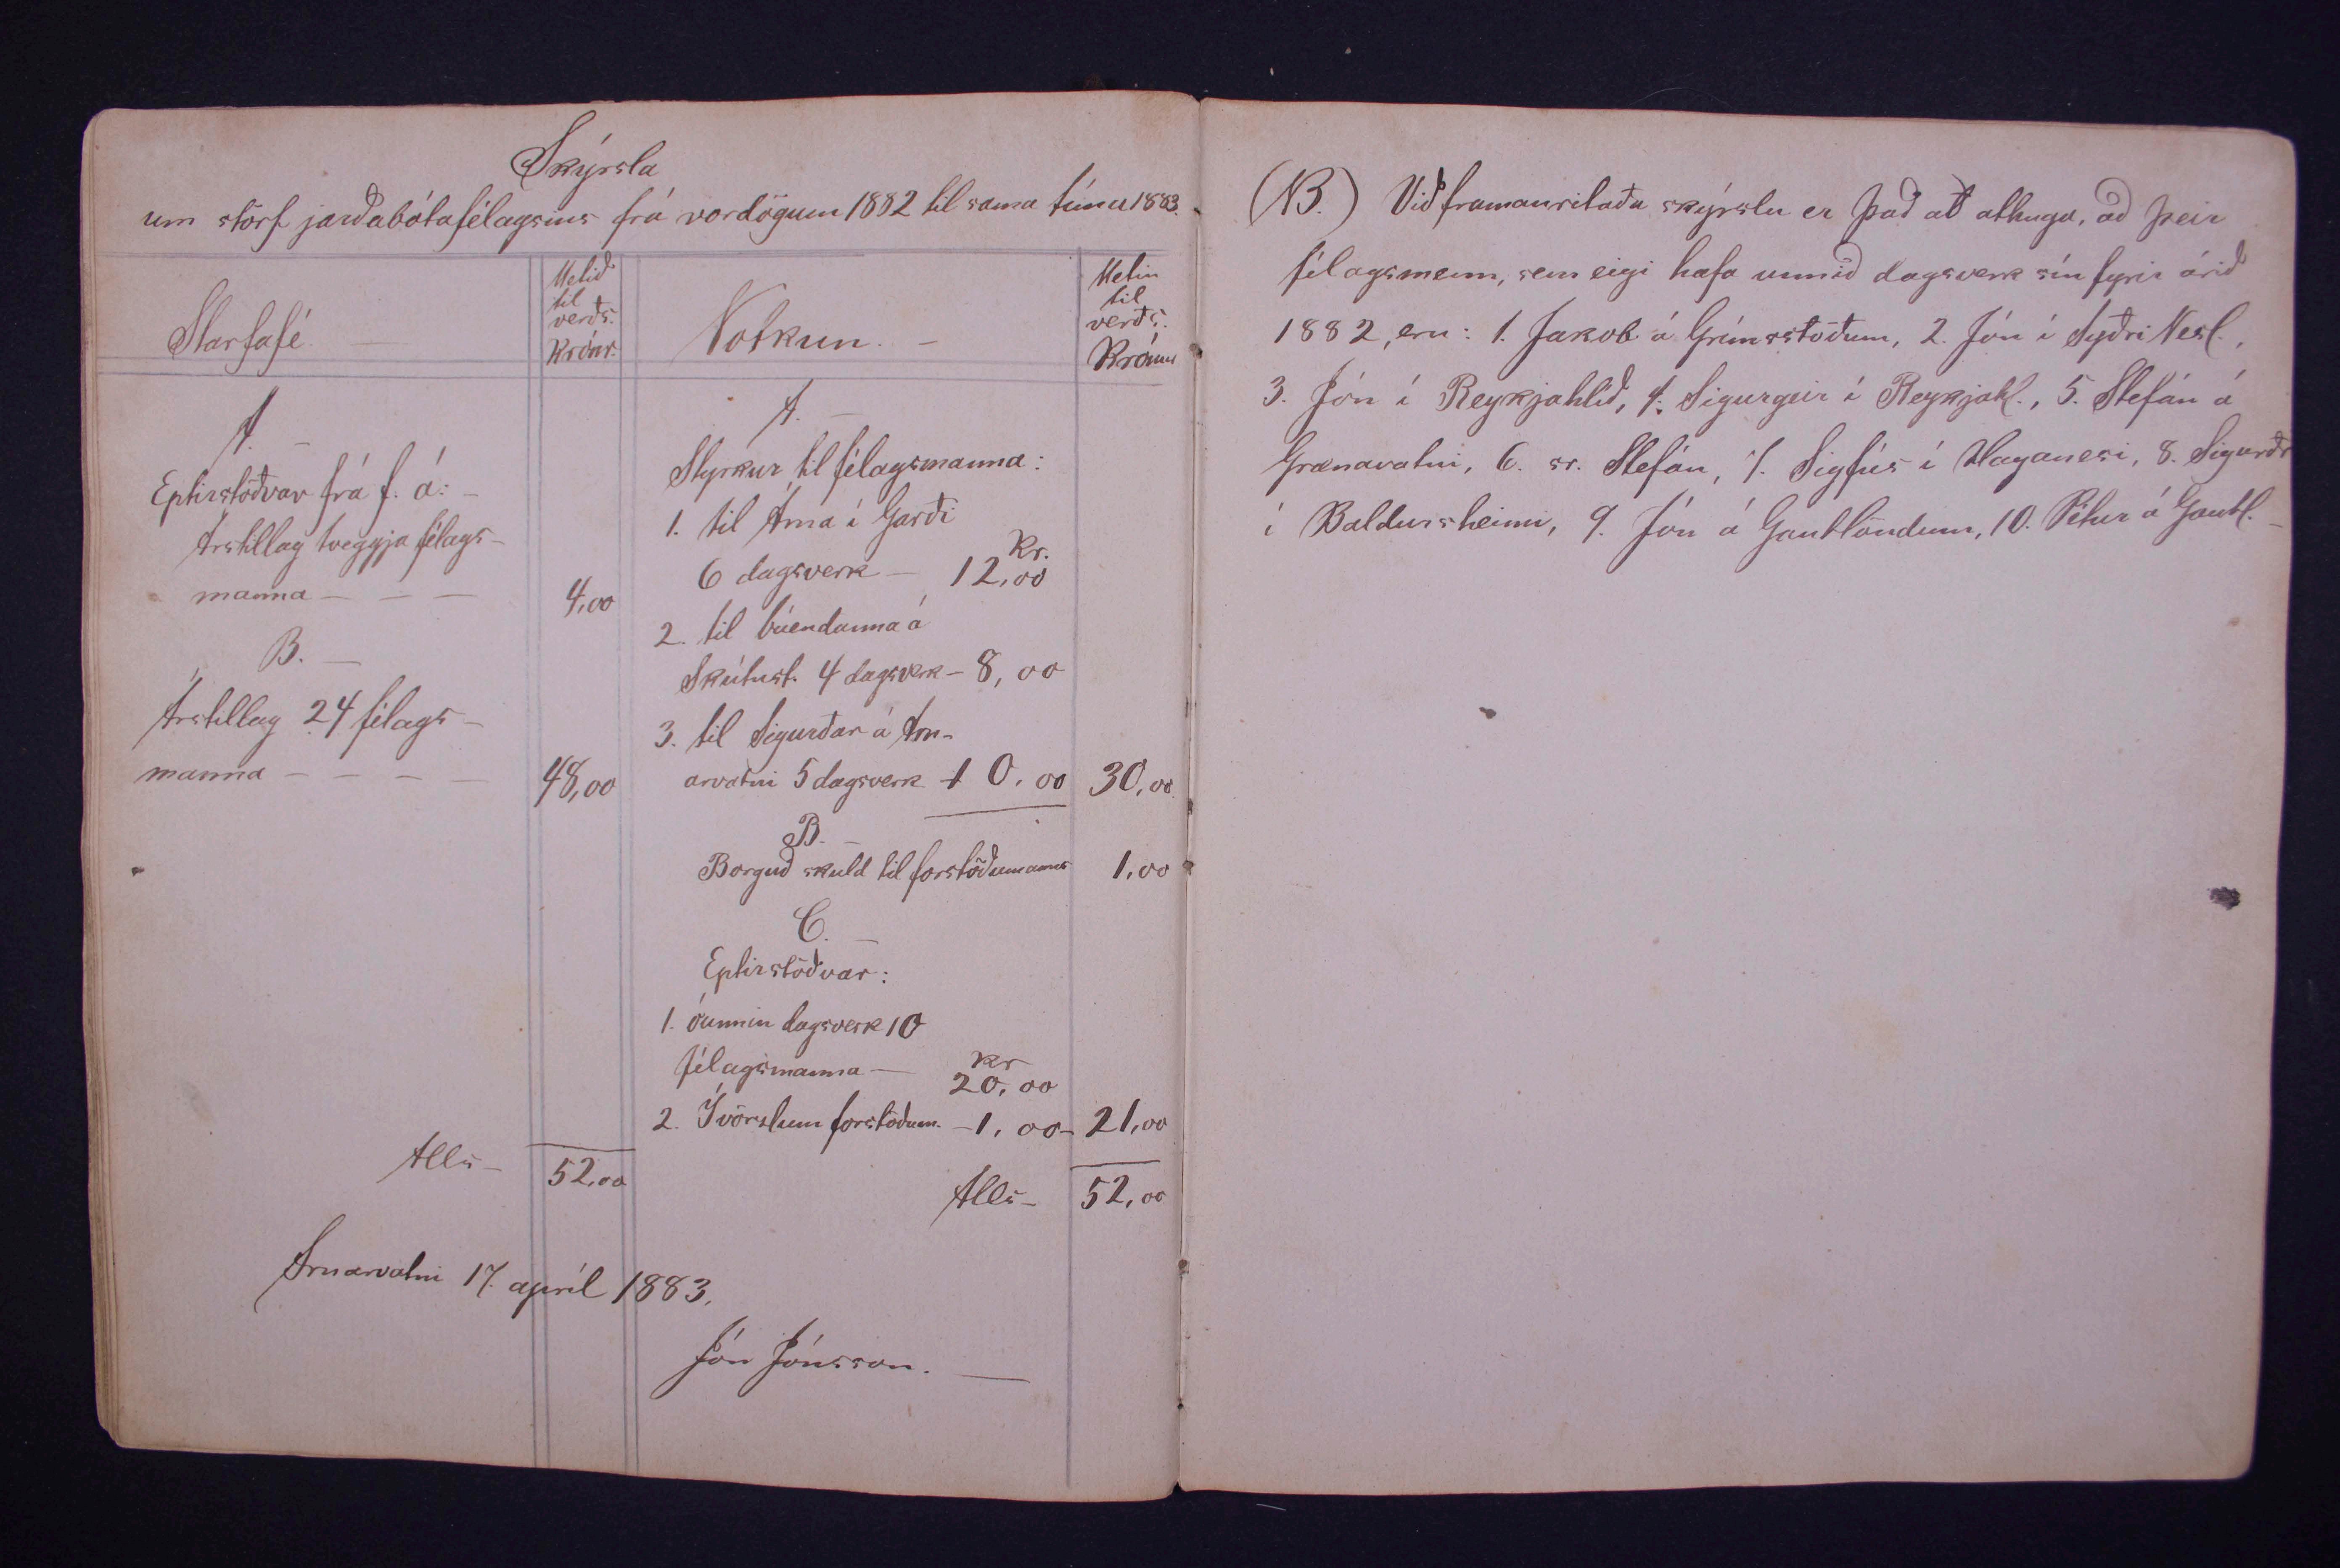 Skýrsla
um störf jarðabótafélagsins frá vordögum 1882 til sama tíma 1883.
Starfafé. —
Metið
til
verðs.
Krónr.
Notkun. —
Metin
til
verðs.
Krónur
A. —
Eptirstöðvar frá f. á: —
Árstillag tveggja félags-
manna — — — 4,00
B. —
Árstillag 24 félags-
manna — — — — 48,00
Alls — 52,00
A. —
Styrkur til félagsmanna:
1. til Árna í Garði
Kr.
6 dagsverk — 12,00
2. til búendanna á
Skútust. 4 dagsverk — 8,00
3. til Sigurðar á Arn-
arvatni 5 dagsverk 10,00 30,00
B. —
Borguð skuld til forstöðumanns 1,00
C. —
Eptirstöðvar:
1. óunnin dagsverk 10
kr
félagsmanna — 20,00
2. Í vörslum forstöðum. — 1,00 — 21,00
Alls — 52,00
Arnarvatni 17. apríl 1883.
Jón Jónsson. —
(NB.) Við framanritaða skýrslu er það að athuga, að þeir
félagsmenn, sem eigi hafa unnið dagsverk sín fyrir árið
1882, eru: 1. Jakob á Grímsstöðum, 2. Jón í Syðri Nesl.,
3. Jón í Reykjahlíð, 4. Sigurgeir í Reykjahl., 5. Stefán á
Grænavatni, 6. sr. Stefán, 7. Sigfús í Haganesi, 8. Sigurðr
í Baldursheimi, 9. Jón á Gautlöndum, 10. Pétur á Gautl. —